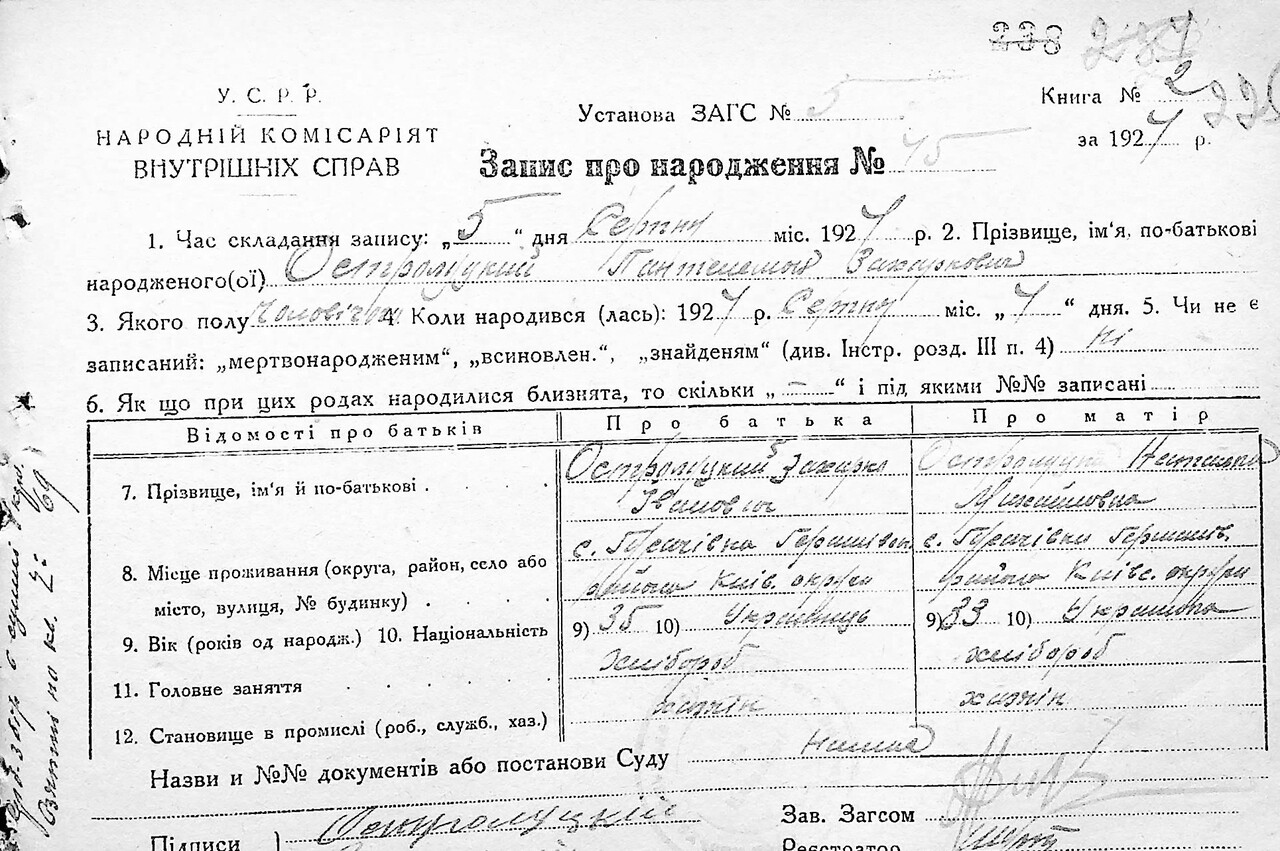 238 237
У. С. Р. Р.
НАРОДНІЙ КОМІСАРІЯТ
ВНУТРІШНІХ СПРАВ
Установа ЗАГС № 5
Книга № 2
за 1927 р.
Запис про народження № 45
1. Час складання запису: „5“ дня Серпня міс. 1927 р. 2. Прізвище, ім'я, по-батькові
народженого(ої) Остромуцкий Пантелемон Захаркович
3. Якого полу Чоловічого 4. Коли народився (лась): 1927 р. Серпня міс. „4“ дня. 5. Чи не є
записаний: „мертвонародженим“, „всиновлен.“, „знайденям“ (див. Інстр. розд. III п. 4) ні
6. Як що при цих родах народилися близнята, то скільки „ — “ і під якими №№ записані
Відомості про батьків Про батька Про матір
7. Прізвище, ім'я й по-батькові Остромуцкий Захарко Іванович Наталка Михайловна
8. Місце проживання (округа, район, село або
місто, вулиця, № будинку) района Київ. округи района Київс. округи
9. Вік (років од народж.) 10. Національність 9) 35 10) Українець 9) 33 10) Українка
11. Головне заняття хлібороб хлібороб
12. Становище в промислі (роб., служб., хаз.) хазяїн хазяїн
Назви и №№ документів або постанови Суду
Підписи Остромуцкий
Зав. Загсом
Реєстратор